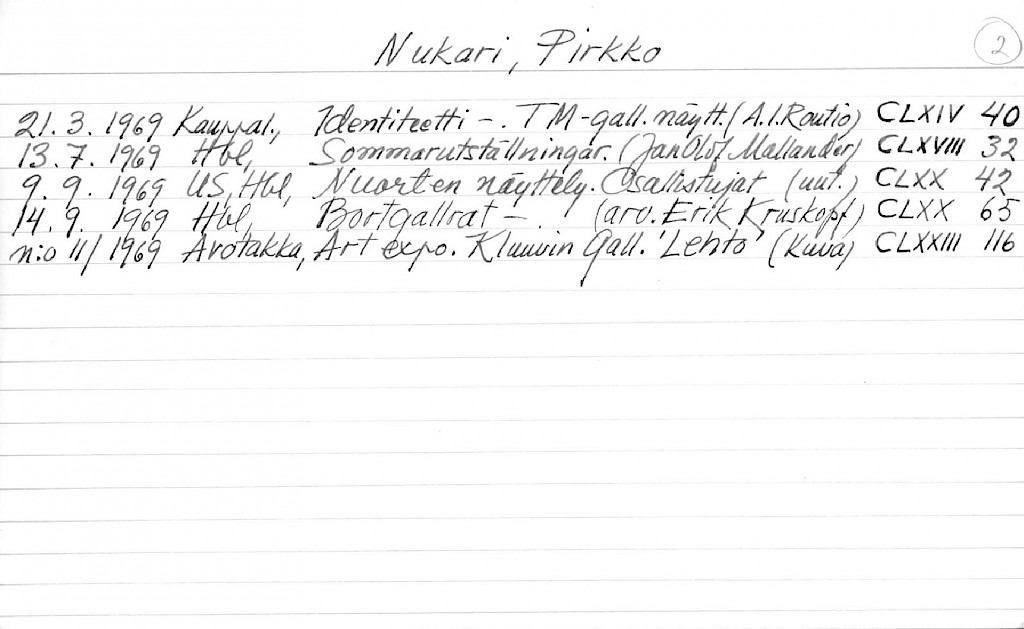 Nukari, Pirkko 2
21.3.1969 Kauppal., Identiteetti -. TM-gall. näytt. (A.I.Routio) CLXIV 40
13.7.1969 Hbl, Sommarutställningar. (JanOlof Mallander) CLXVIII 32
9.9.1969 US, Hbl, Nuorten näyttely. Osallistujat (uut.) CLXX 42
14.9.1969 Hbl, Bortgallrat -. (arv. Erik Kruskopf) CLXX 65
n:o 11/1969 Avotakka, Art expo. Kluuvin Gall. 'Lehto' (Kuva) CLXXIII 116